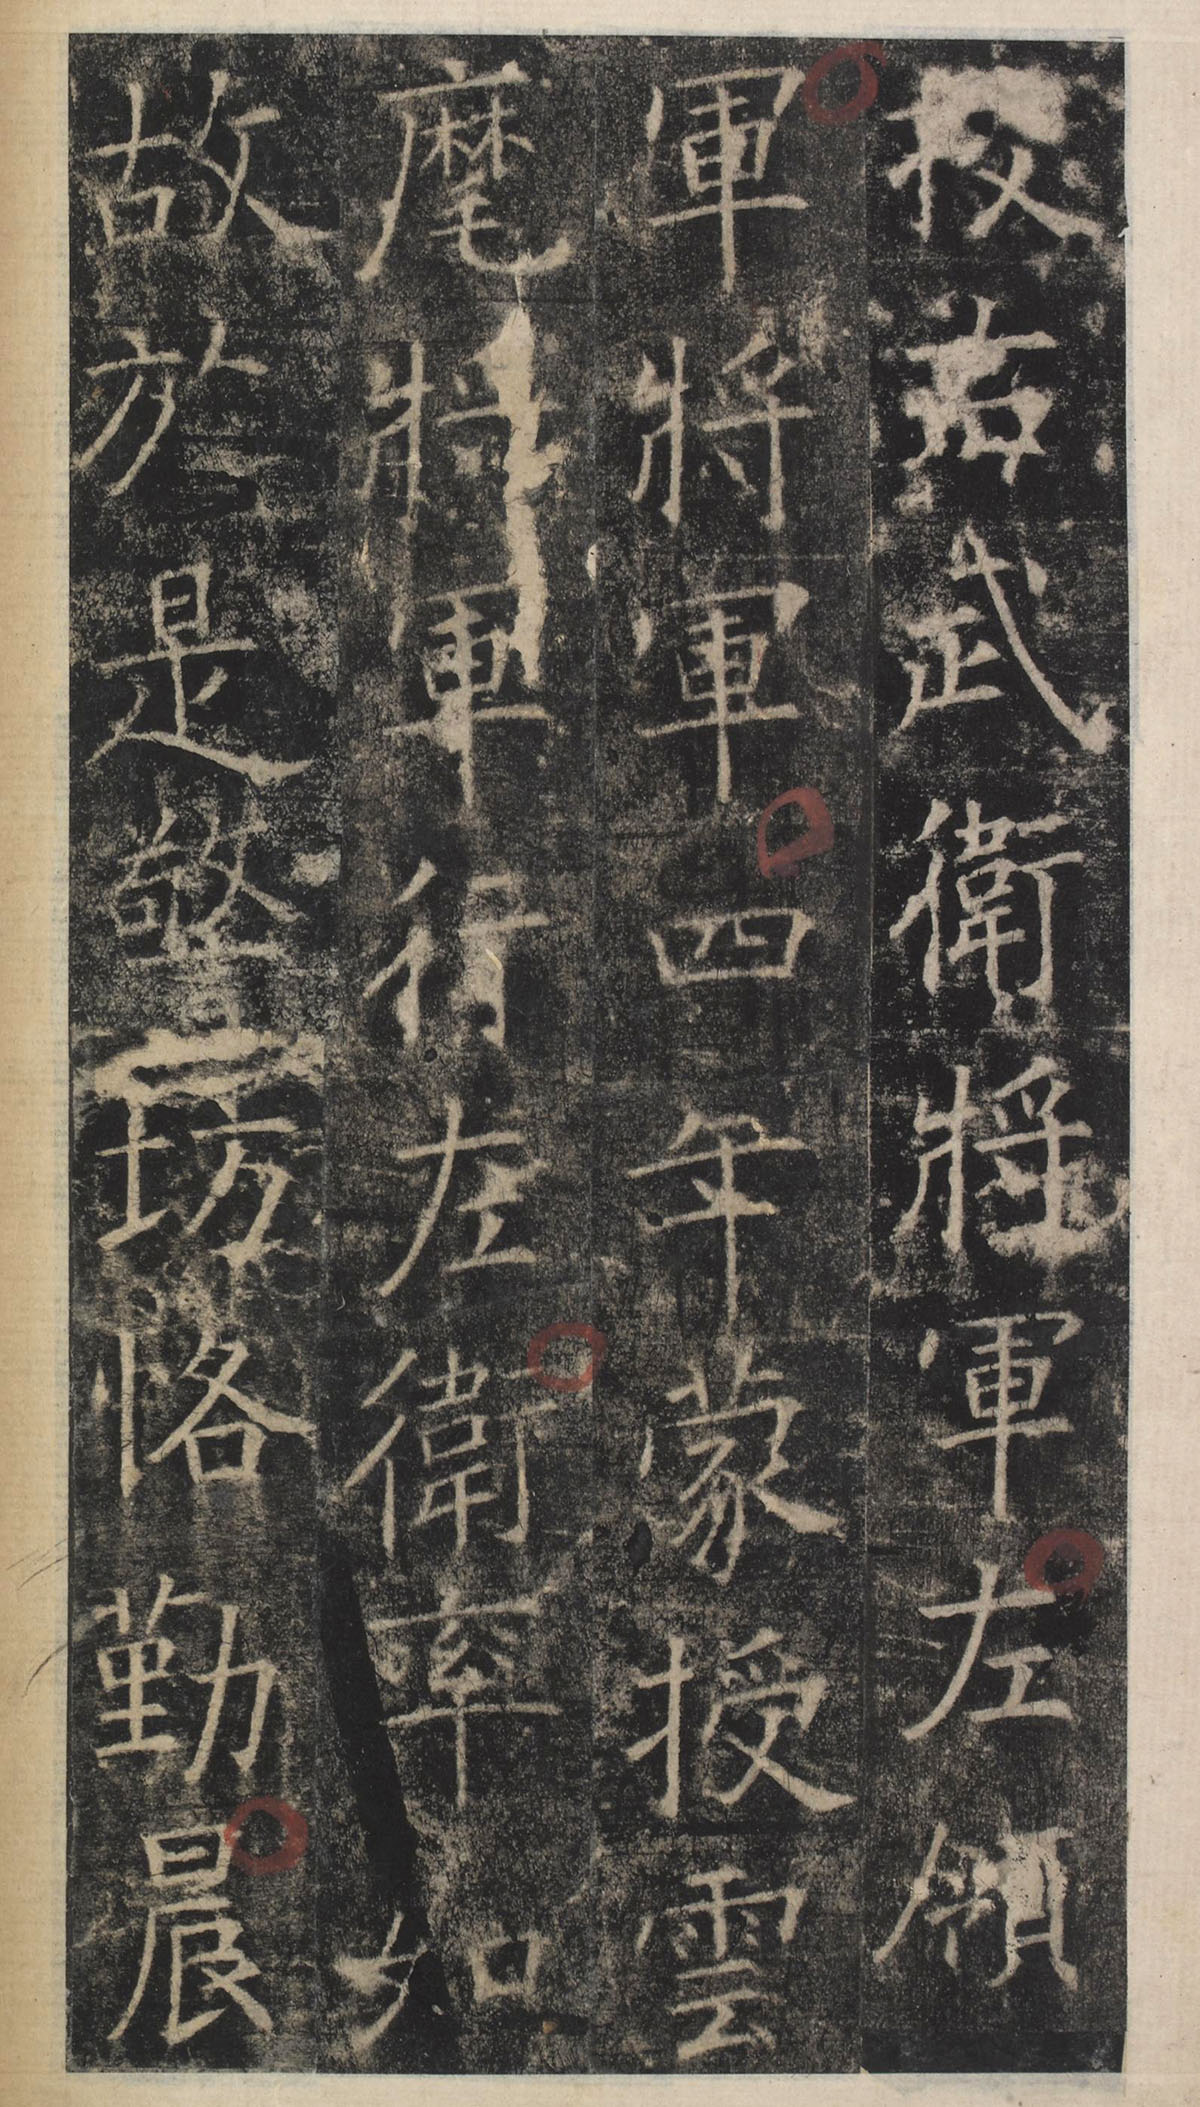 授右武衛將軍左領
軍將軍四年蒙授雲
麾將軍行左衛率如
故於是警坊恪勤晨